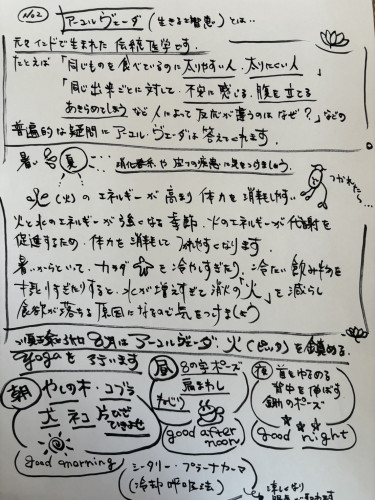 No2 アーユルヴェーダ (生きる智恵) とは..
元々インドで生まれた伝統医学です.
たとえば「同じものを食べているのに太りやすい人、太りにくい人」
「同じ出来ごとに対して、不安に感じる、腹を立てる
あきらめてしまうなど人によって反応が違うのはなぜ?」などの
普遍的な疑問にアーユルヴェーダは答えてくれます.
暑い 夏 消化器系や皮フの疾患に気をつけましょう.
火(火)のエネルギーが高まり体力を消耗しやすい
つかれた〜
火と水のエネルギーが強くなる季節.火のエネルギーが代謝を
促進するため、体力を消耗してつかれやすくなります.
暑いからといって、カラダを冷やしすぎたり、冷たい飲みものを
摂りすぎたりすると、水が増えすぎて消火の「火」を減らし
食欲が落ちる原因になるので気をつけましょう
8月はアーユルヴェーダ、火(ピッタ)を鎮める.
yogaを行います
朝 やしの木・コブラ
犬 ネコ 片ひざ
ひきよせ
good morning
昼 8の字ポーズ
肩まわし
ねじり
good after
noon
夜 首をゆるめる
背中を伸ばす
鋤のポーズ
good night
シータリー・プラーナヤーマ
(冷却呼吸法)
涼しくなり